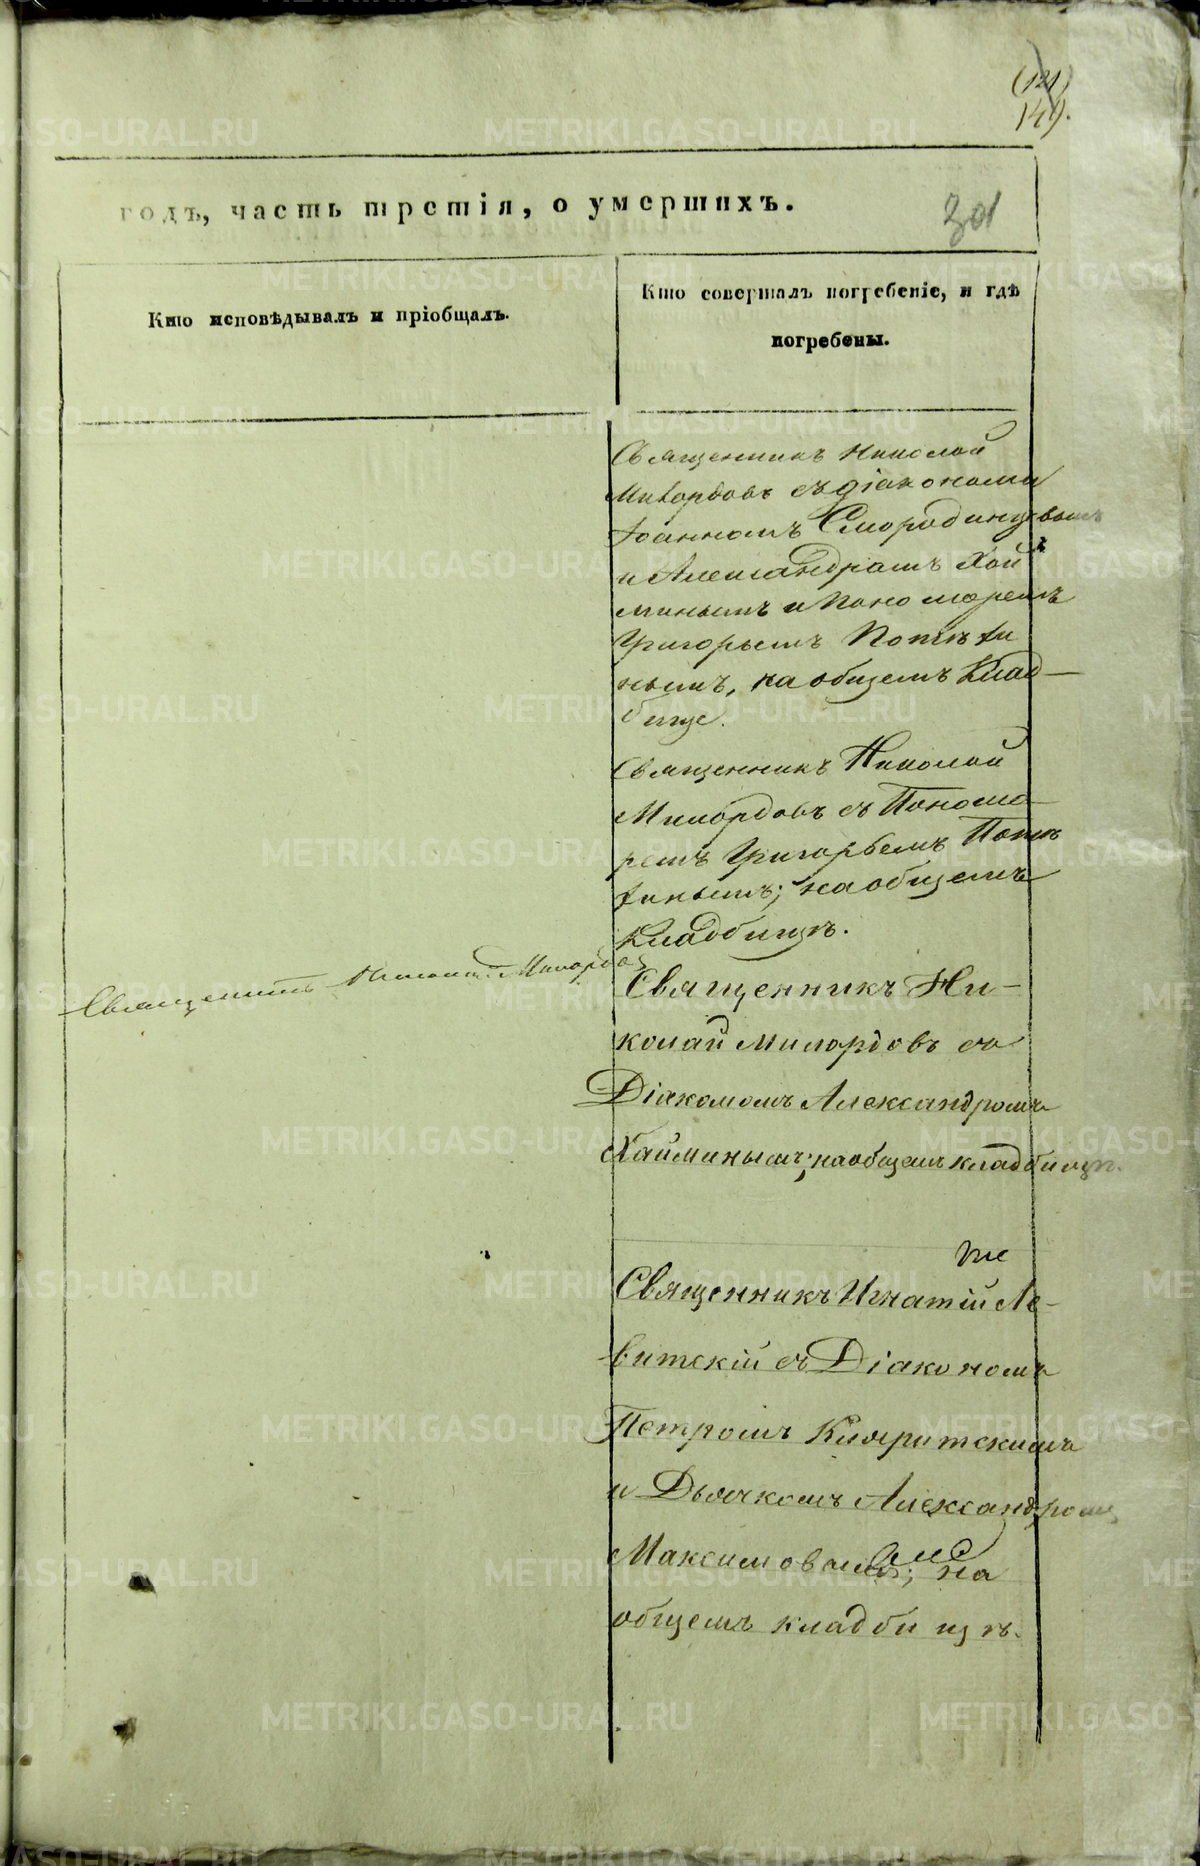 (121)
149.
годъ, часть третія, о умершихъ.
301
Кто исповѣдывалъ и пріобщалъ.
Кто совершалъ погребеніе, и гдѣ
погребены.
Священникъ Николай
Милордовъ съ діаконами
Іоанномъ Смородинцевымъ
и Александромъ Хай
минымъ и Пономаремъ
Григорьемъ Потѣхи
нымъ, на общемъ Клад-
бище.
Священникъ Николай
Милордовъ съ Понома-
ремъ Григорьемъ Потѣ
хинымъ; на общемъ
Кладбищѣ.
Священникъ Николай Милордовъ
Священникъ Ни-
колай Милордовъ со
Діакономъ Александромъ
Хайминымъ; на общемъ кладбищѣ.
Священникъ Игнатій Ле-
витскій съ Діакономъ
Петромъ Кипритскимъ
и Дьячкомъ Александромъ
Максимовымъ; на
общемъ кладбищѣ.